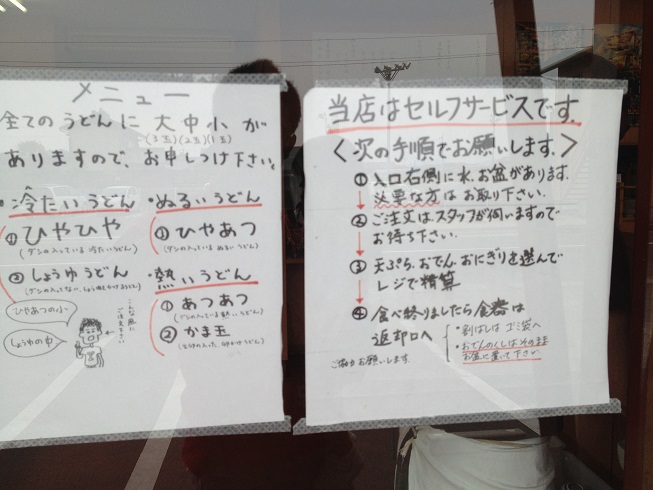 メニュー
全てのうどんに 大中小 が
(3玉)(2玉)(1玉)
ありますので、お申しつけ下さい。
・冷たいうどん
①ひやひや
(ダシの入っている 冷たいうどん)
②しょうゆうどん
ひやあつの小
しょうゆの中
こんな風に
ご注文下さい
・ぬるいうどん
①ひやあつ
(ダシの入っている ぬるいうどん)
・熱いうどん
①あつあつ
(ダシの入っている 熱いうどん)
②かま玉
当店はセルフサービスです。
〈次の手順でお願いします。〉
①入口右側に水、お盆があります。
必要な方はお取り下さい。
②ご注文はスタッフが伺いますので
お待ち下さい。
③天ぷら、おでん、おにぎりを選んで
レジで精算
④食べ終りましたら食器は
返却口へ
・割ばしは ゴミ袋へ
・おでんのくしはそのまま
お盆に置いて下さい
ご協力お願いします